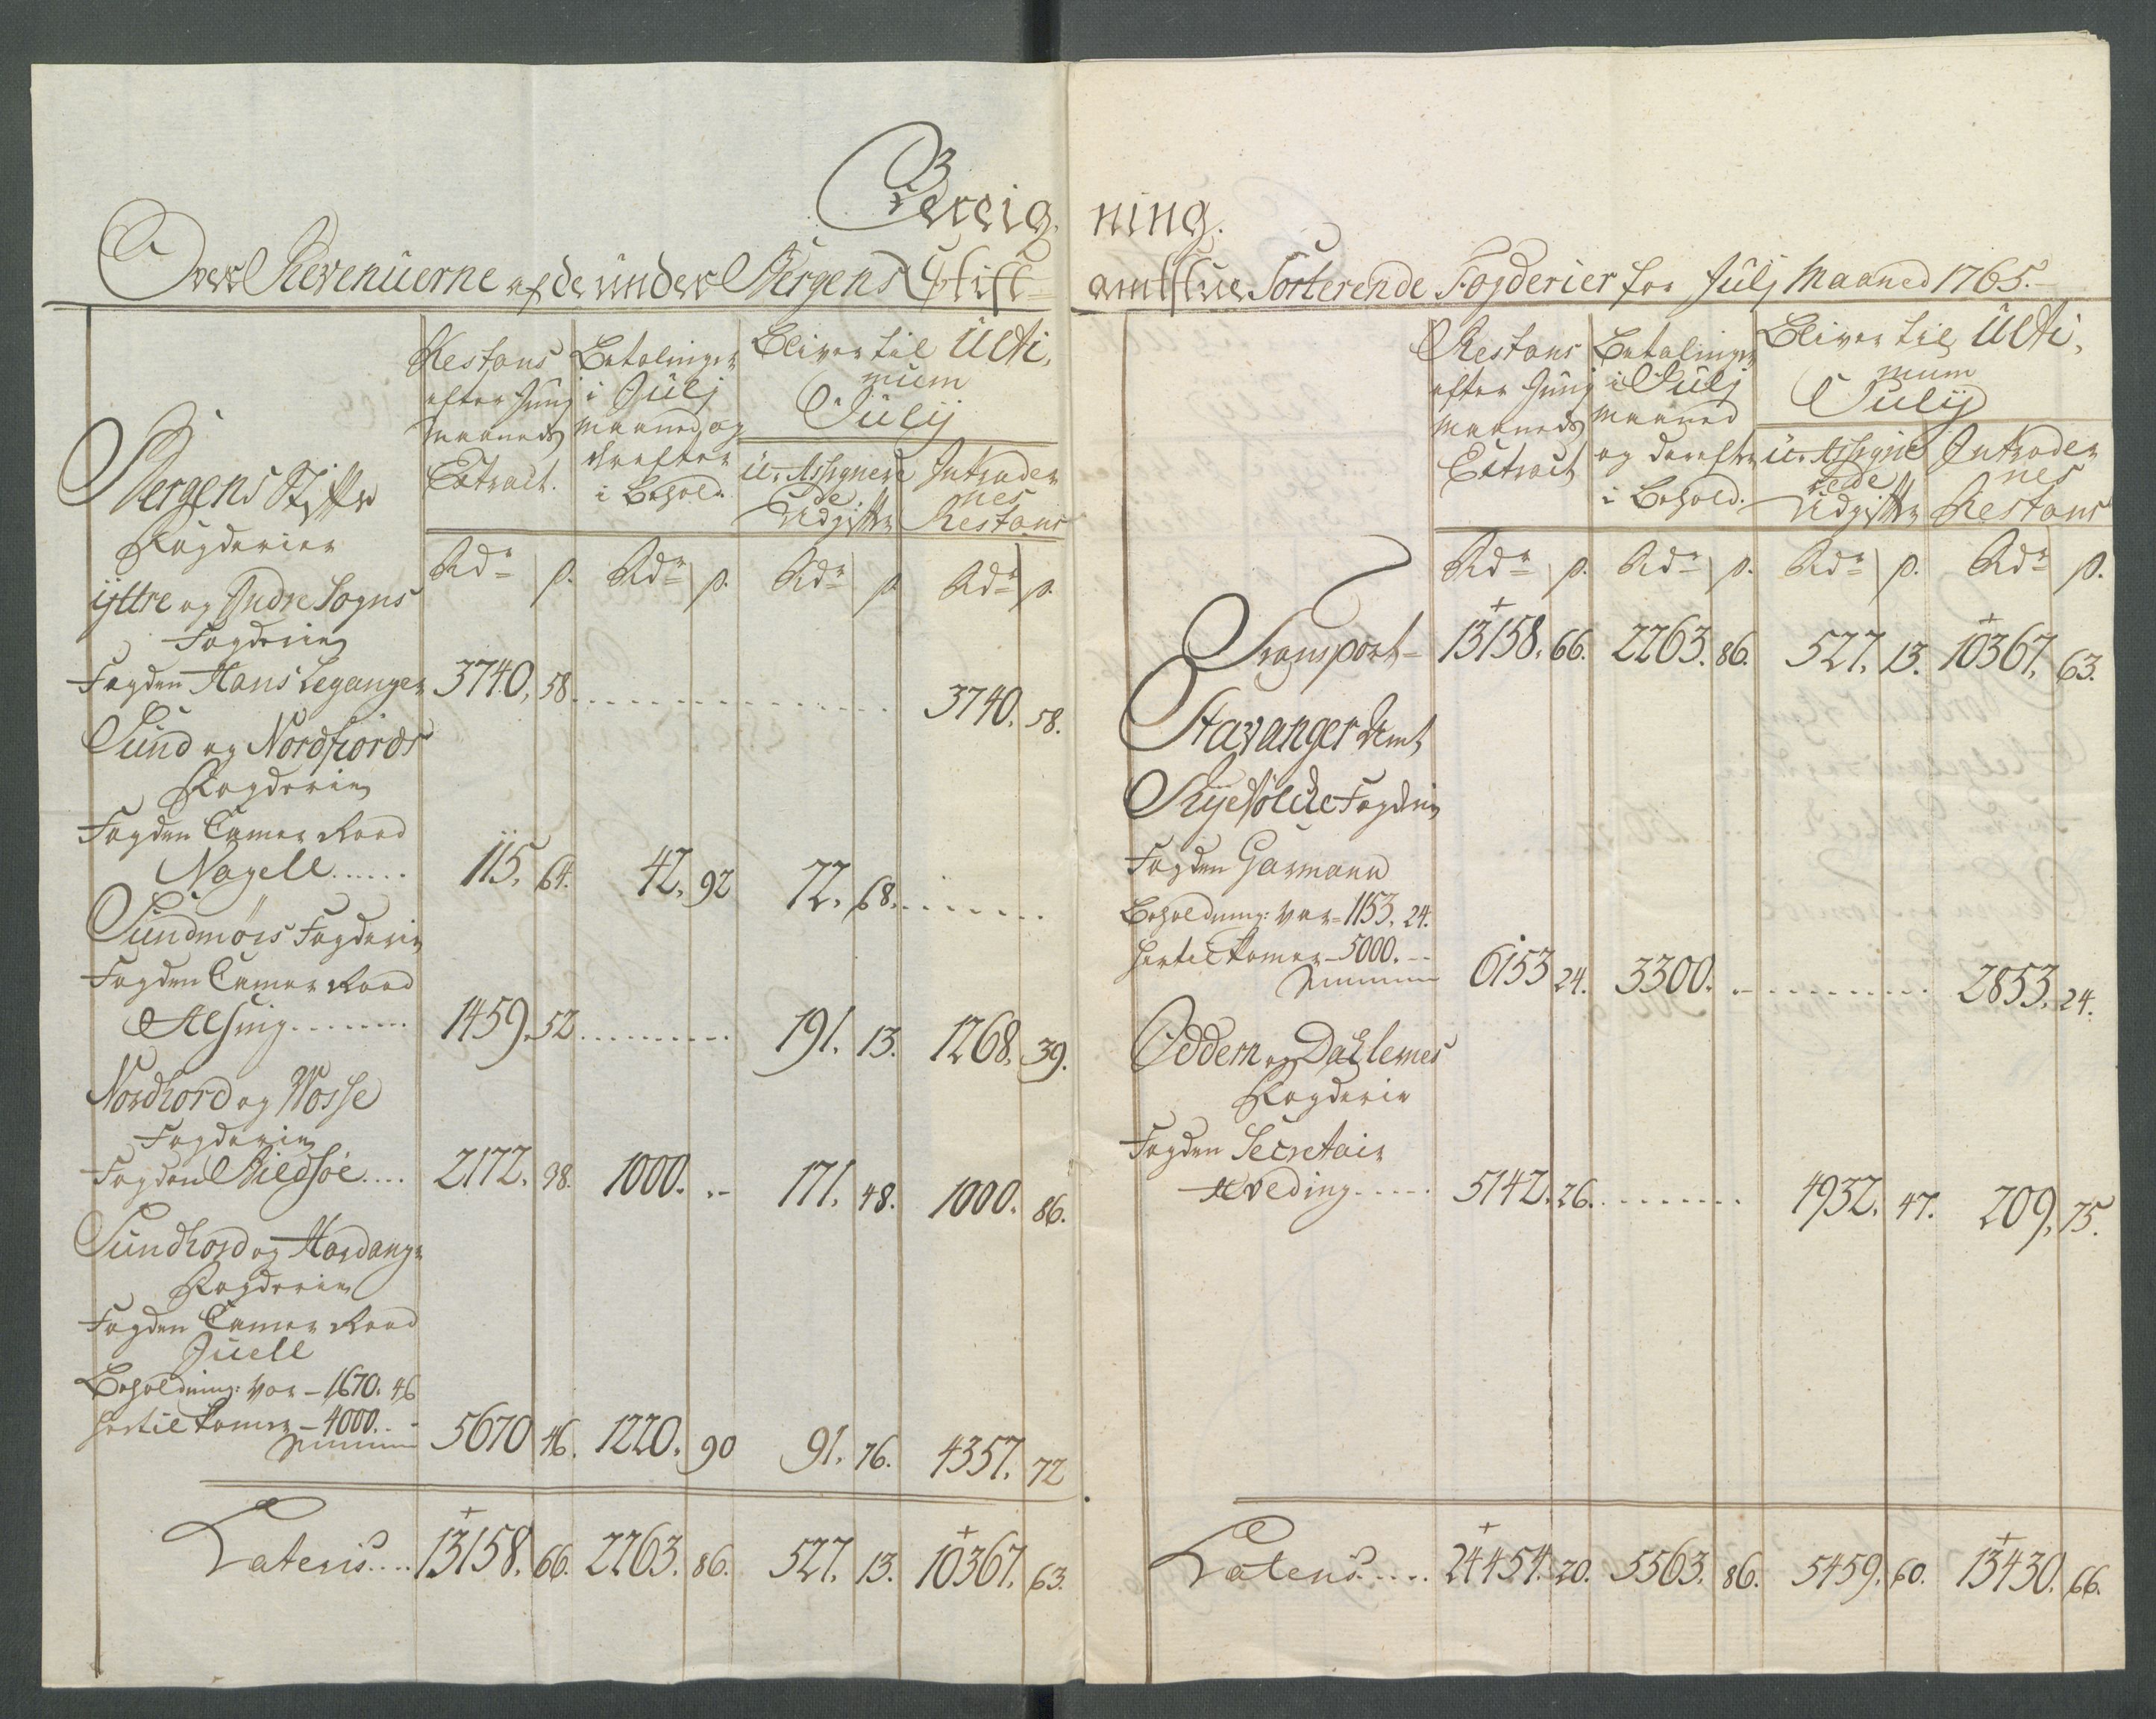 Bereig ning.
Over Revenuerne af de under Bergens Stift=
amtstue Sorterende Fogderier for Julj Maaned 1765.
Bergens Stifts
Fogderier
Restans
efter Junj
Maaneds
Extract.
Betalinger
i Julj
maaned og
derefter
i Behold.
Bliver til Ulti,
mum
Julij
u-Assignere
de
Udgifter
Intrader
nes
Restans
Rdr p. Rdr p. Rdr p Rdr p.
ÿttre og Indre Sogns
Fogderie
Fogden Hans Leganger 3740. 58. 3740. 58.
Sund og Nordfiords
Fogderie
Fogden Camer Raad
Nagell...... 115. 64. 42. 92 72. 68.
Sundmörs Fogderie
Fogden Camer Raad
Alsing........ 1459. 52. 191. 13. 1268. 39.
Nordhord og Wosse
Fogderie
Fogden Bildsöe.... 2172. 38. 1000. .- 171. 48. 1000. 86.
Sundhord og Hardangr
Fogderie
Fogden Camer Raad
Juell
Beholdning: var - 1670. 46
hertil kommer - 4000. . -
5670 46. 1220. 90 91. 76. 4357. 72
Lateris.... 13158. 66. 2263. 86. 527. 13. 10367. 63.
Restans
efter Junj
Maaneds
Extract
Betalinger
i Julj
maaned
og derefter
i Behold.
Bliver til Ulti,
mum
Julij
u-Assigne
rede
Udgifter
Intrader
nes
Restans
Rdr p. Rdr p. Rdr p. Rdr p.
Transport- 13158. 66. 2263. 86. 527. 13. 10367. 63.
Stavanger Amt
Ryefölcke Fogderie
Fogden Garmann
Beholdning: var = 1153. 24.
hertil kommer - 5000. --
6153 24. 3300. .- 2853. 24.
Oddern og Dahlernes
Fogderie
Fogden Secretair
Weding..... 5142. 26. 4932. 47. 209. 75.
Lateris..... 24454. 20. 5563. 86. 5459. 60. 13430. 66.